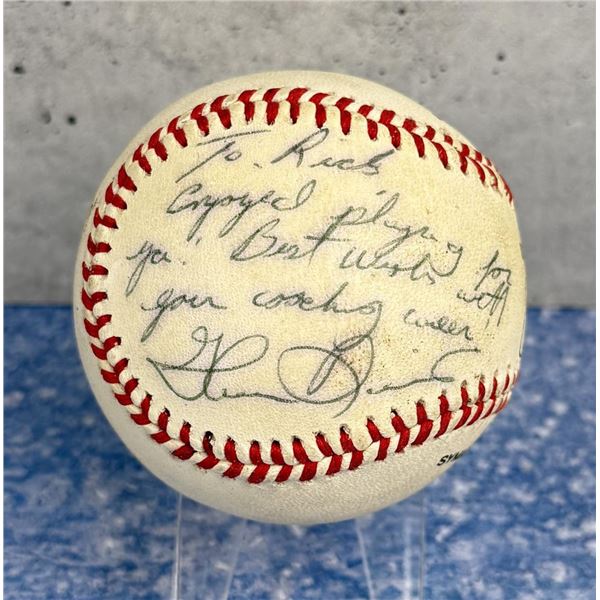 To Rick
Enjoyed playing for
ya! Best Wishes with
your coaching career
Glenn
SYN